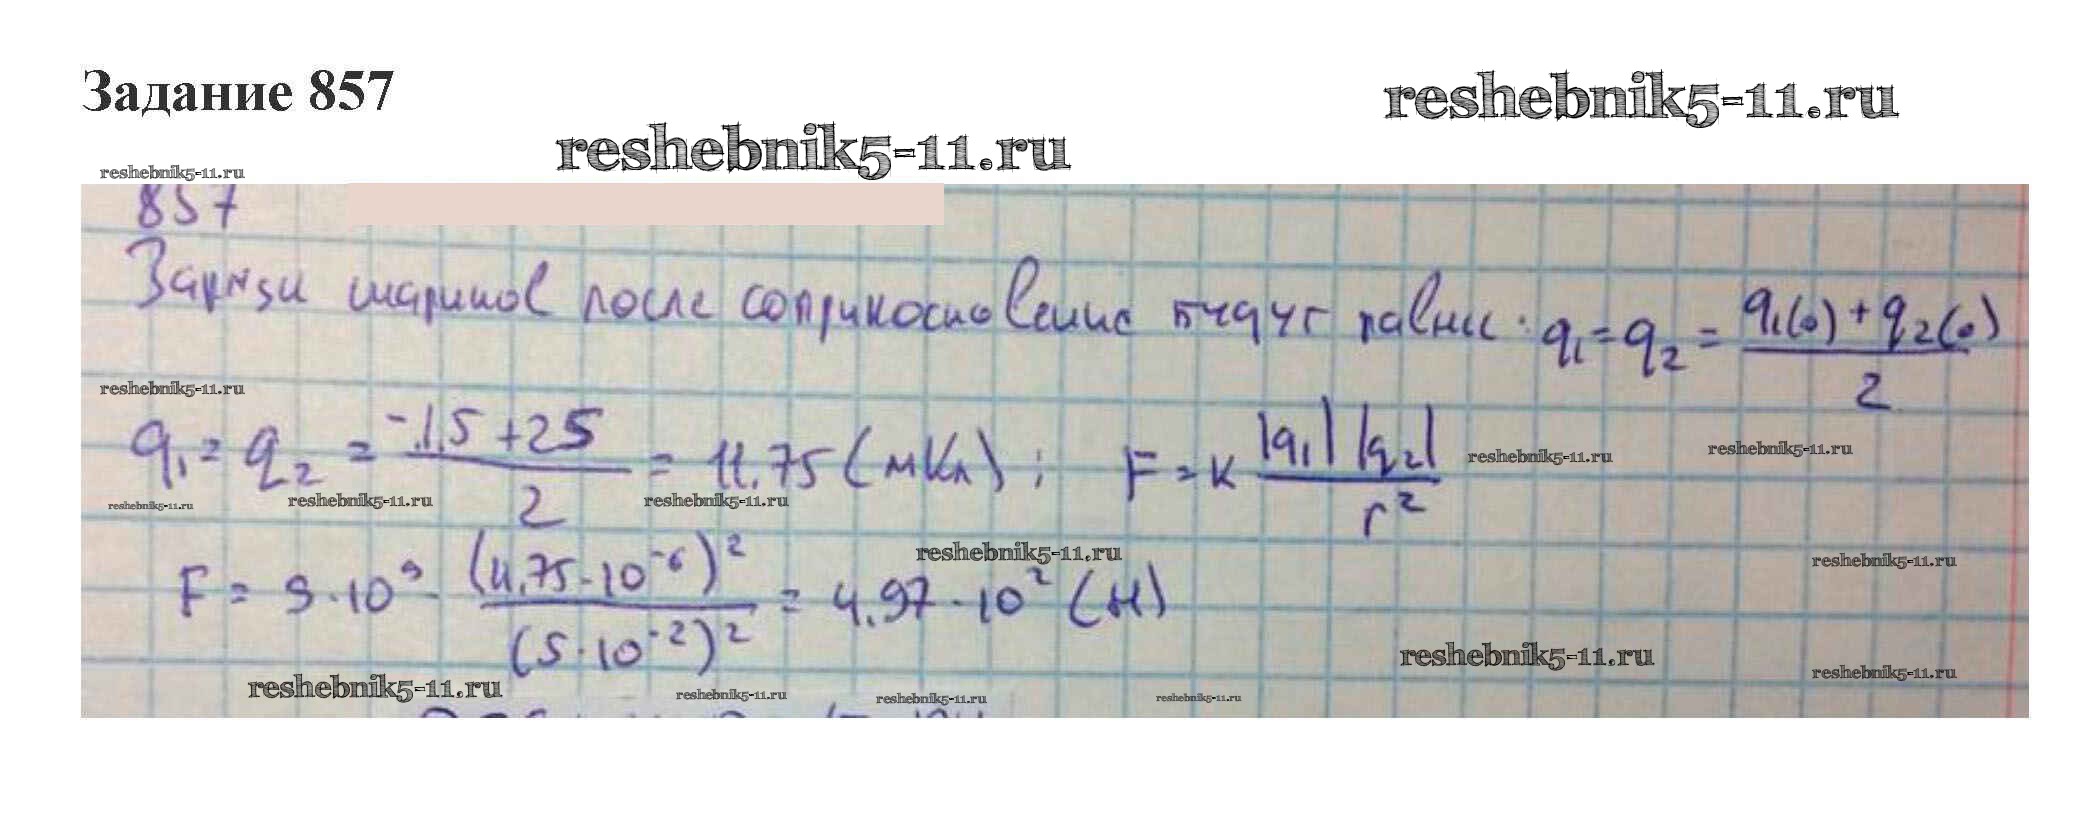 Задание 857
reshebnik5-11.ru
reshebnik5-11.ru
reshebnik5-11.ru
857
Заряды шариков после соприкосновения будут равны: q₁ = q₂ = (q₁(0) + q₂(0))/2
reshebnik5-11.ru
q₁ = q₂ = (-1,5 + 25)/2 = 11,75 (мКл) ; F = k |q₁| |q₂|/r²
reshebnik5-11.ru
reshebnik5-11.ru
reshebnik5-11.ru
reshebnik5-11.ru
reshebnik5-11.ru
reshebnik5-11.ru
reshebnik5-11.ru
F = 9·10⁹ · (11,75·10⁻⁶)²/(5·10⁻²)² = 4,97·10² (Н)
reshebnik5-11.ru
reshebnik5-11.ru
reshebnik5-11.ru
reshebnik5-11.ru
reshebnik5-11.ru
reshebnik5-11.ru